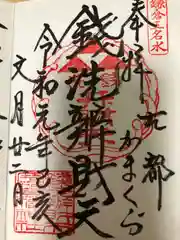 鎌倉五名水
奉拝 古都
かまくら
銭洗辨財天
令和元年己亥
文月廿二日